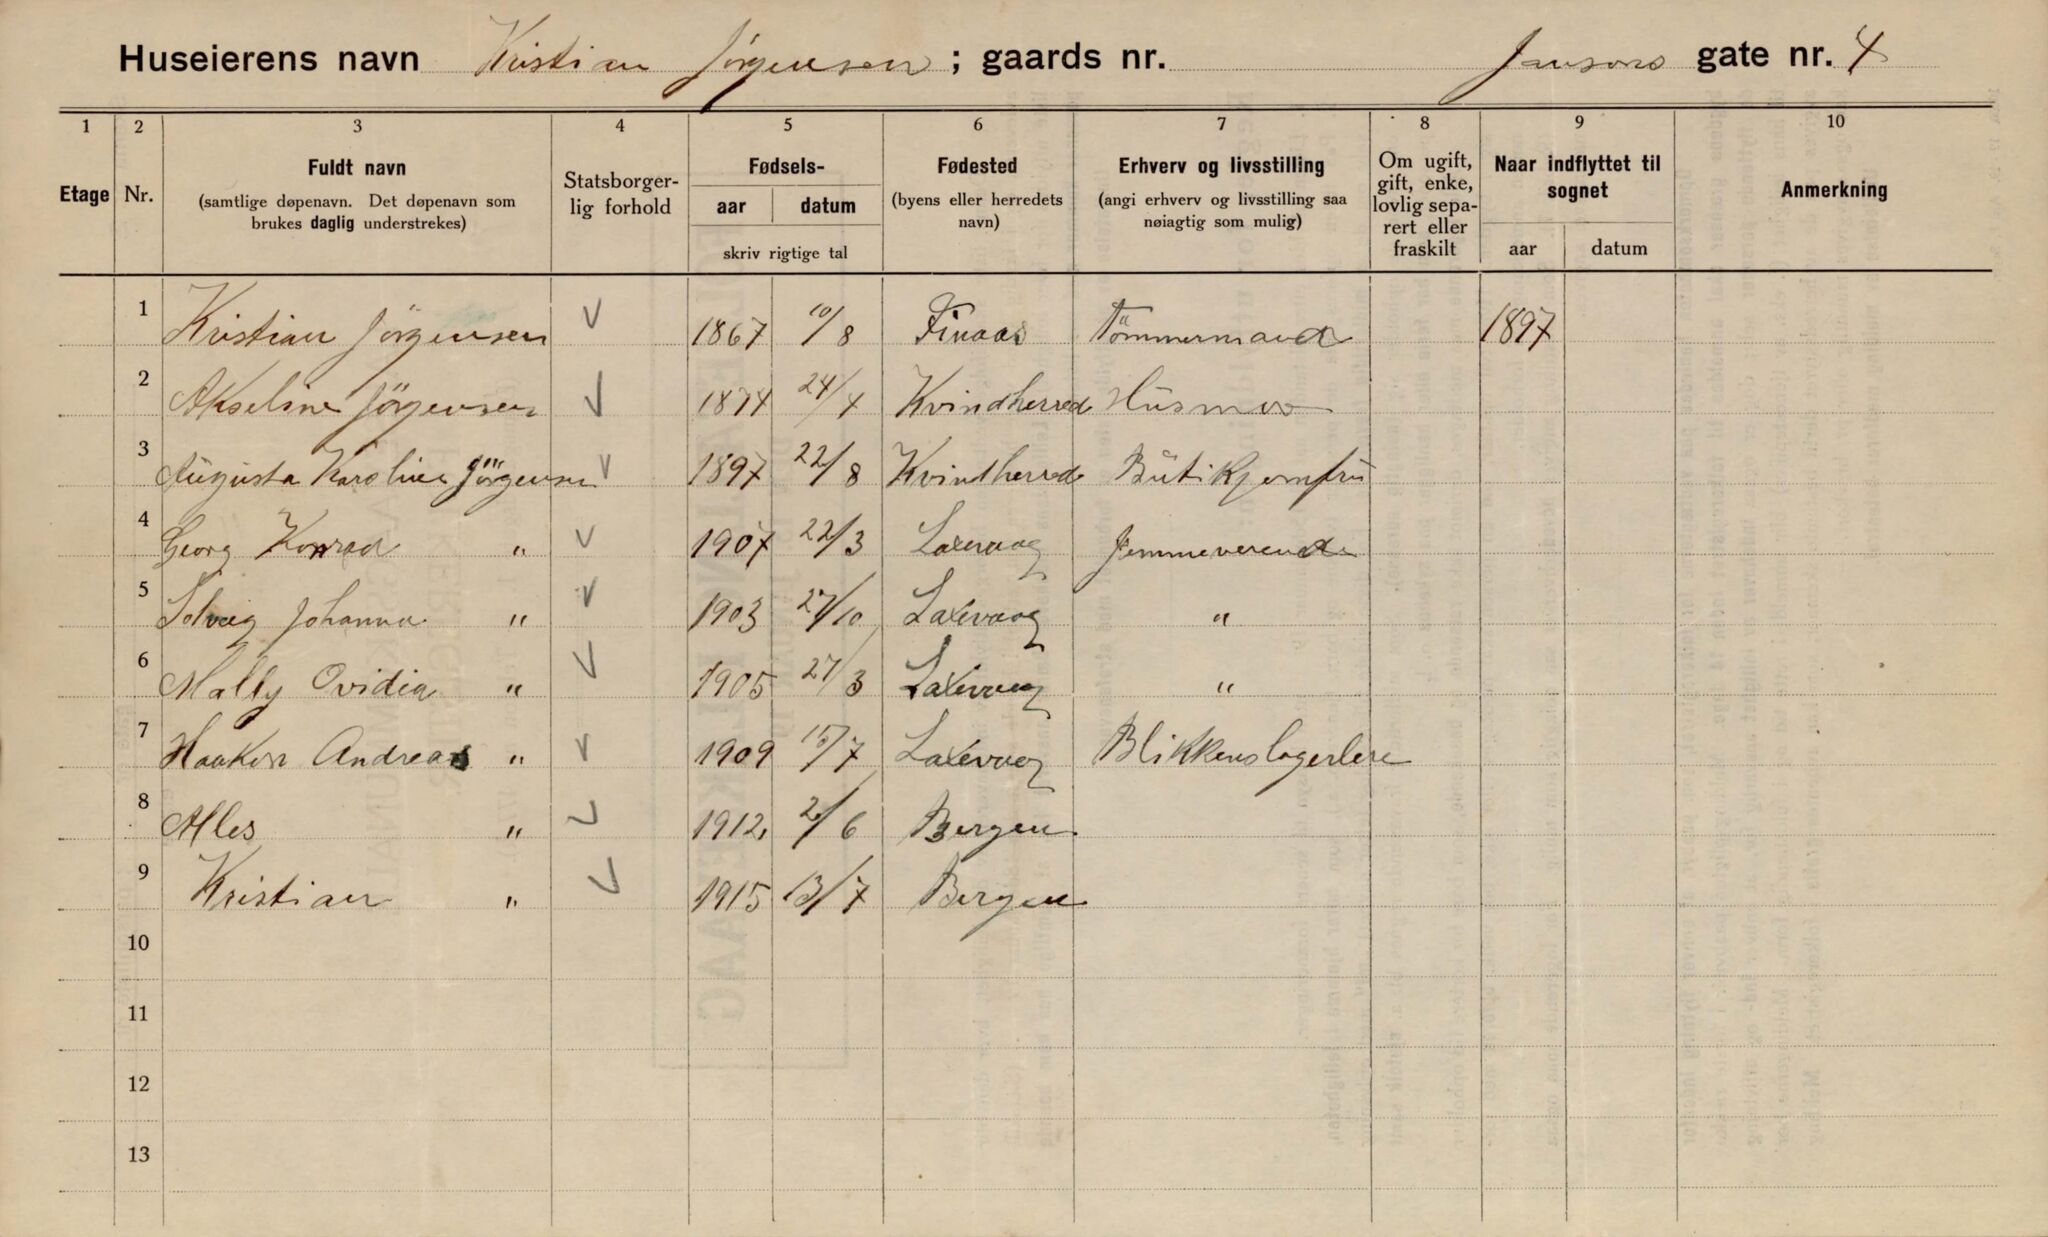 Huseierens navn Kristian Jørgensen ; gaards nr. Jansons gate nr. 4
1 2 3 4 5 6 7 8 9 10
Etage Nr. Fuldt navn (samtlige døpenavn. Det døpenavn som brukes daglig understrekes) Statsborger-lig forhold Fødsels- aar datum skriv rigtige tal Fødested (byens eller herredets navn) Erhverv og livsstilling (angi erhverv og livsstilling saa nøiagtig som mulig) Om ugift, gift, enke, lovlig sepa-rert eller fraskilt Naar indflyttet til sognet aar datum Anmerkning
1 Kristian Jørgensen √ 1867 10/8 Finaas Tömmermand 1897
2 Akseline Jörgensen √ 1874 24/4 Kvindherred Husmor
3 Augusta Karoline Jörgensen √ 1897 22/8 Kvindherred Butikjomfru
4 Georg Konrad " √ 1907 22/3 Laxevaag Jemmeverende
5 Solveig Johanna " √ 1903 27/10 Laxevaag "
6 Mally Ovidia " √ 1905 27/3 Laxevaag "
7 Haakon Andreas " √ 1909 15/7 Laxevaag Blikkenslagerlere
8 Alles " √ 1912 2/6 Bergen
9 Kristian " √ 1915 13/7 Bergen
10
11
12
13